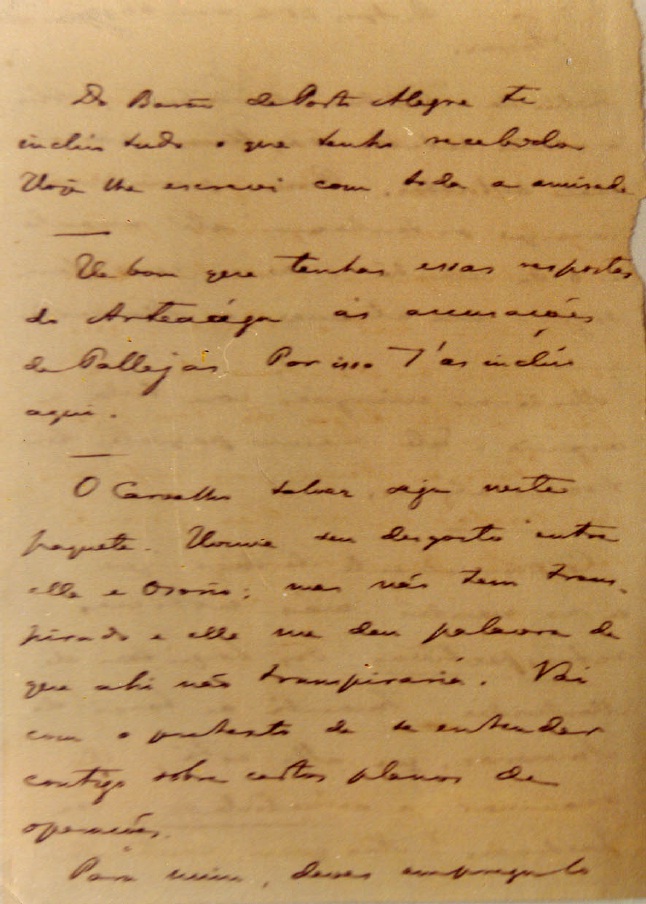 Do Barão de Porto Alegre te
incluo tudo o que tenho recebido
Hoje lhe escrevi com toda a amisade
É bom que tenhas essas respostas
de Arteaéga ás accusações
de Pallejas Por isso T'as inclúo
aqui.
O Carvalho talvez siga neste
paquete. Houve seu desgosto entre
elle e Osorio; mas não tem trans-
pirado e elle me deu palavra de
que ahi não transpiraria. Vai
com o pretexto de se entender
contigo sobre certos planos de
operações.
Para mim, deves empregal-o